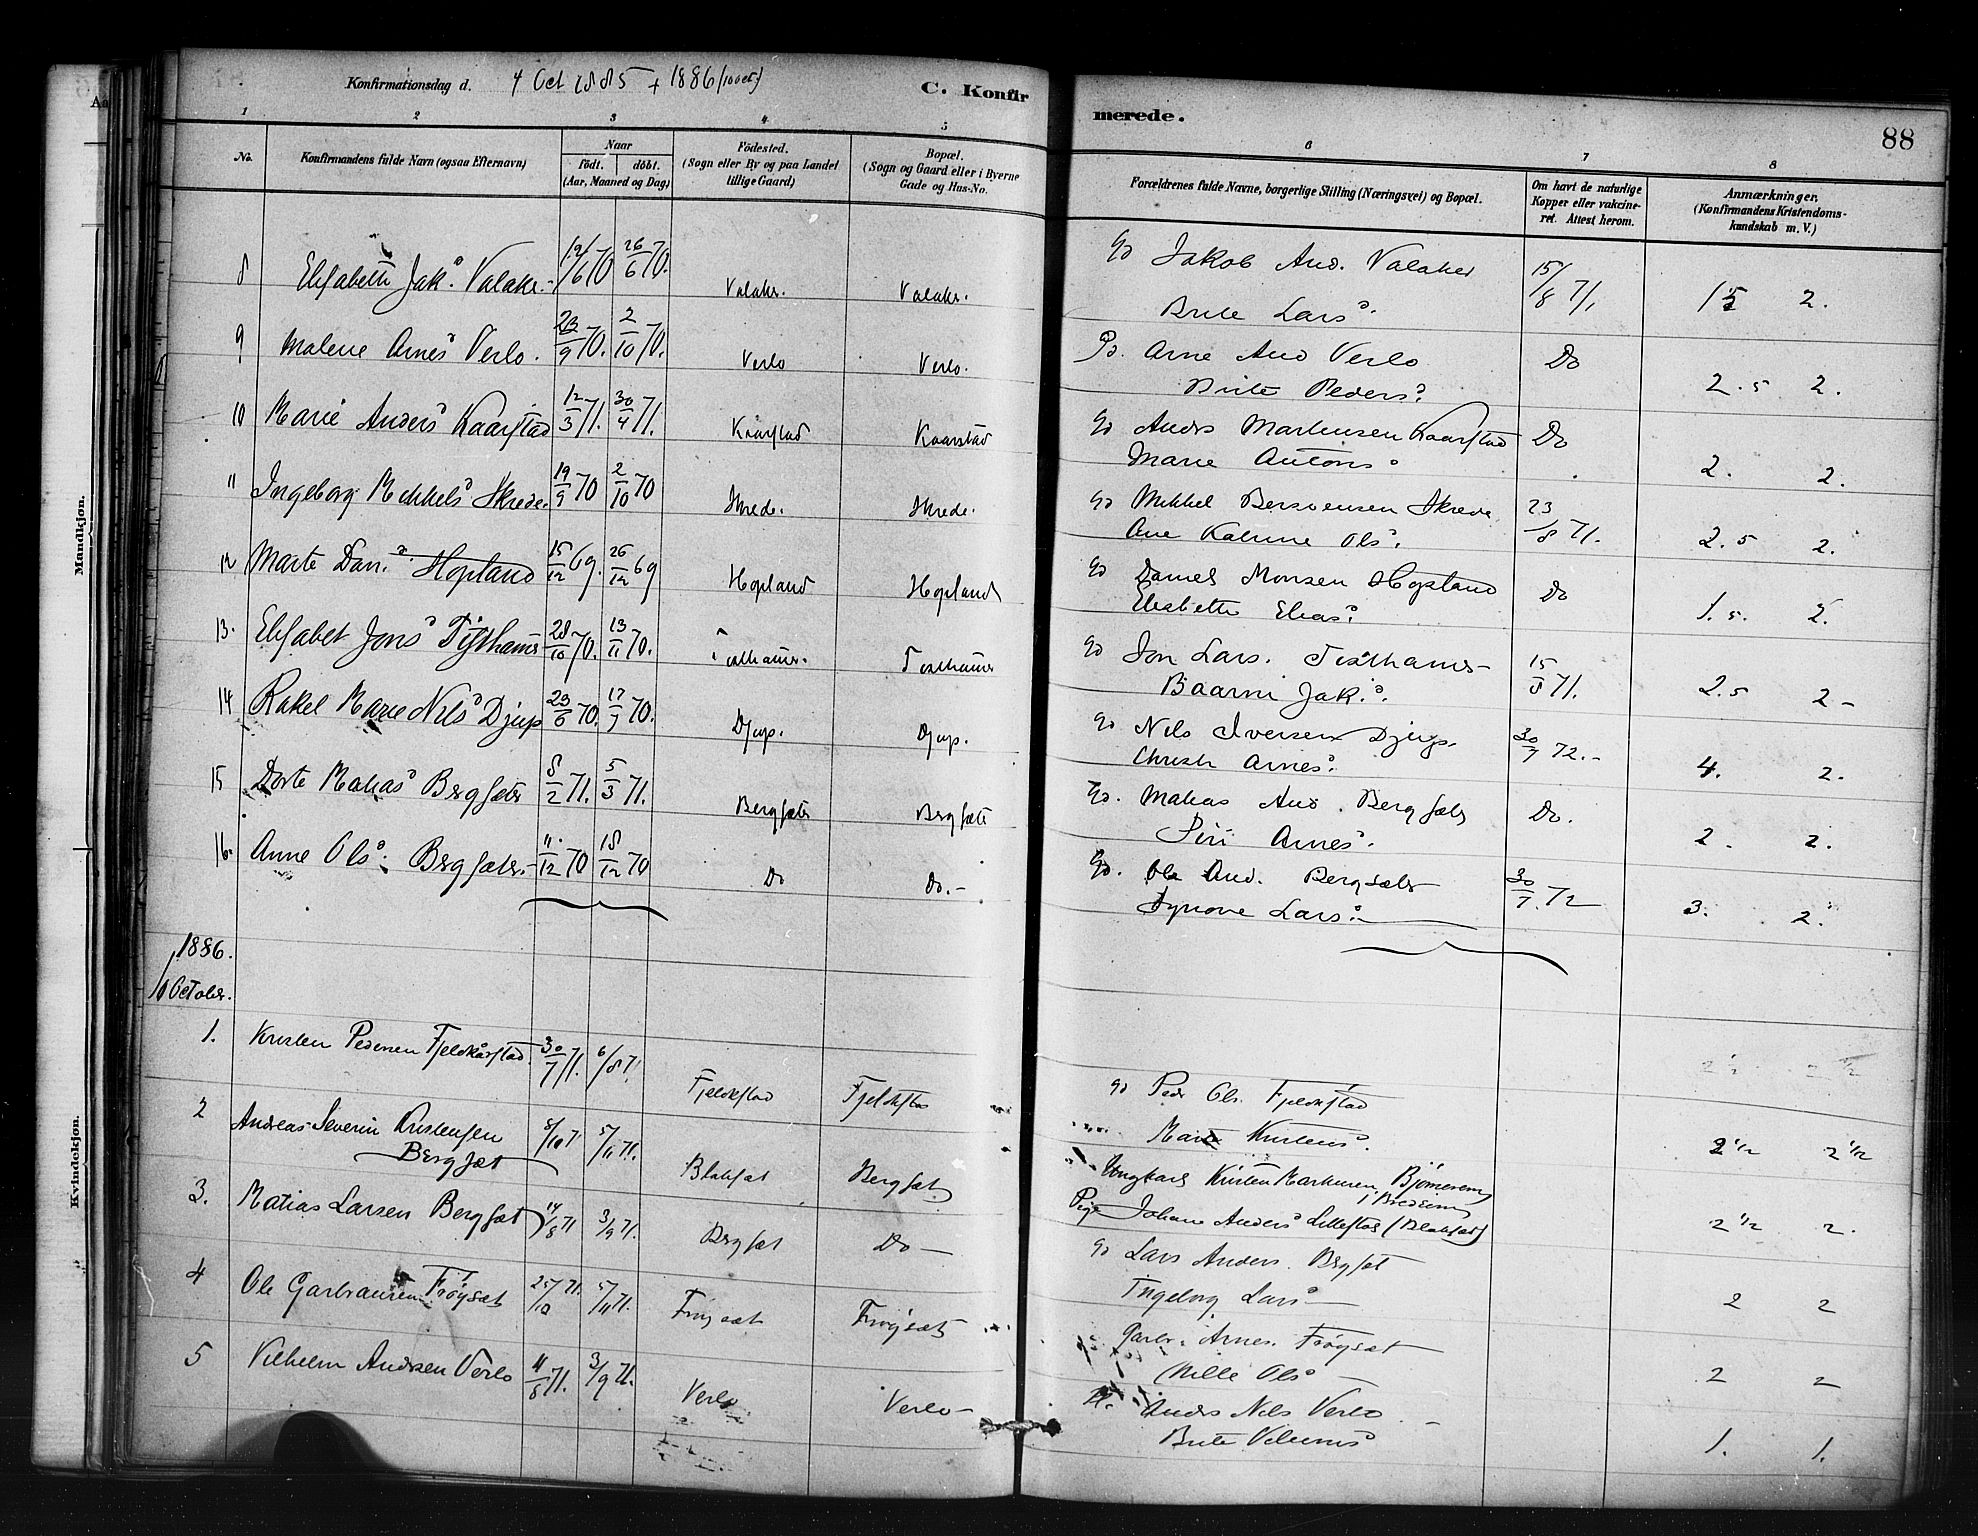 Konfirmationsdag d. 4 Oct 1885 + 1886 (10 oct.) C. Konfir
merede. 88
1 2 3 4 5 6 7 8
No. Konfirmandens fulde Navn (ogsaa Efternavn) Naar født. døbt. (Aar, Maaned og Dag) Födested. (Sogn eller By og paa Landet tillige Gaard) Bopæl. (Sogn og Gaard eller i Byerne Gade og Hus-No.
Forældrenes fulde Navne, borgerlige Stilling (Næringsvei) og Bopæl. Om havt de naturlige Kopper eller vakcineret. Attest herom. Anmærkninger. (Konfirmandens Kristendomskundskab m. V.)
8 Elisabeth Jak.d Valaker 12/6 70 26/6 70. Valaker. Valaker. Gd Jakob And. Valaker 15/8 71. 15 2.
Brite Larsd.
9 Malene Arnesd Verlo. 23/9 70. 2/10 70. Verlo Verlo. Gd. Arne And Verlo Do
Brite Pedersd. 2.5 2.
10 Marie Andersd Kaarstad 12/3 71. 30/4 71. Kaarstad Kaarstad Gd Anders Martensen Kaarstad Do
Marie Antonsd 2. 2.
11 Ingeborg Mikkelsd Skrede. 19/9 70 2/10 70 Skrede. Skrede. Gd Mikkel Skrede 23/8 71.
Ane Katrine Olsd. 2.5 2.
12 Marte Dan.d Hopland 15/12 69. 26/12 69 Hopland Hopland Gd Daniel Monsen Hopland Do
Elisabeth Eliasd. 1.5. 2.
13. Elisabet Jonsd Tisthamer 28/10 70. 13/11 70. Tisthamer. Tisthamer Gd Jon Lars. Tisthamer 15/8 71.
Baarni Jak.d. 2.5 2
14 Rakel Marie Nilsd Djup 23/6 70. 17/7 70. Djup. Djup. Gd Nils Iversen Djup. 30/7 72.
Christi Arnesd. 4. 2.
15 Dorte Matiasd Bergsæter 8/2 71. 5/3 71. Bergsæter Bergsæter Gd. Matias And. Bergsæter Do.
Siri Arnesd. 2. 2.
16. Anne Olsd. Bergsæter 11/12 70 18/12 70 Do Do. Gd. Ole And. Bergsæter 30/7. 72
Synnove Larsd. 3. 2.
1886.
10 October.
1. Kristen Pedersen Fjeldkårstad. 30/7 71. 6/8 71. Fjeldkstad Fjeldkstad Gd Peder Ols. Fjeldkstad
Marte Kristensd. 2 1/2 2 1/2
2 Andreas Severin Kristensen Bergsæt 8/10 71 5/11 71. Blaksæt Bergsæt Ungkarl Kristen Markusen Bjørnereim
i Bredeim
Pige Johane Andersd Lillestøl (Blaksæt) 2 1/2 2.
3. Matias Larsen Bergsæt 14/8 71 3/9 71. Bergsæt Do Gd Lars Anders. Bergsæt
Ingeborg Larsd 2 2
4 Ole Garbransen Frøysæt 25/10 71. 5/11 71. Frøysæt Frøysæt Garbr. Arnes. Frøysæt
Mille Olsd 2 2
5 Vilhelm Andersen Verlo 11/8 71. 3/9 71. Verlo Verlo Pl. Anders Nils Verlo
Brite 1. 1.
Mandkjøn.
Kvindekjøn.